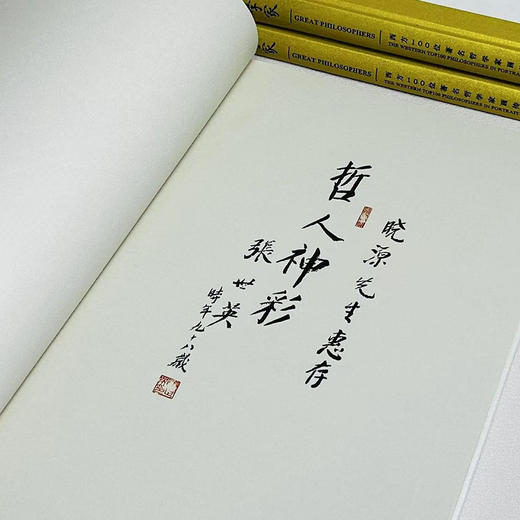 学家
GREAT PHILOSOPHERS
西方100位著名哲学家画像
THE WESTERN TOP100 PHILOSOPHERS IN PORTRAIT
学家
GREAT PHILOSOPHERS
西方100位著名哲学家画像
THE WESTERN TOP100 PHILOSOPHERS IN PORTRAIT
晓源先生惠存
哲人神彩
張世英
時年九十八歲